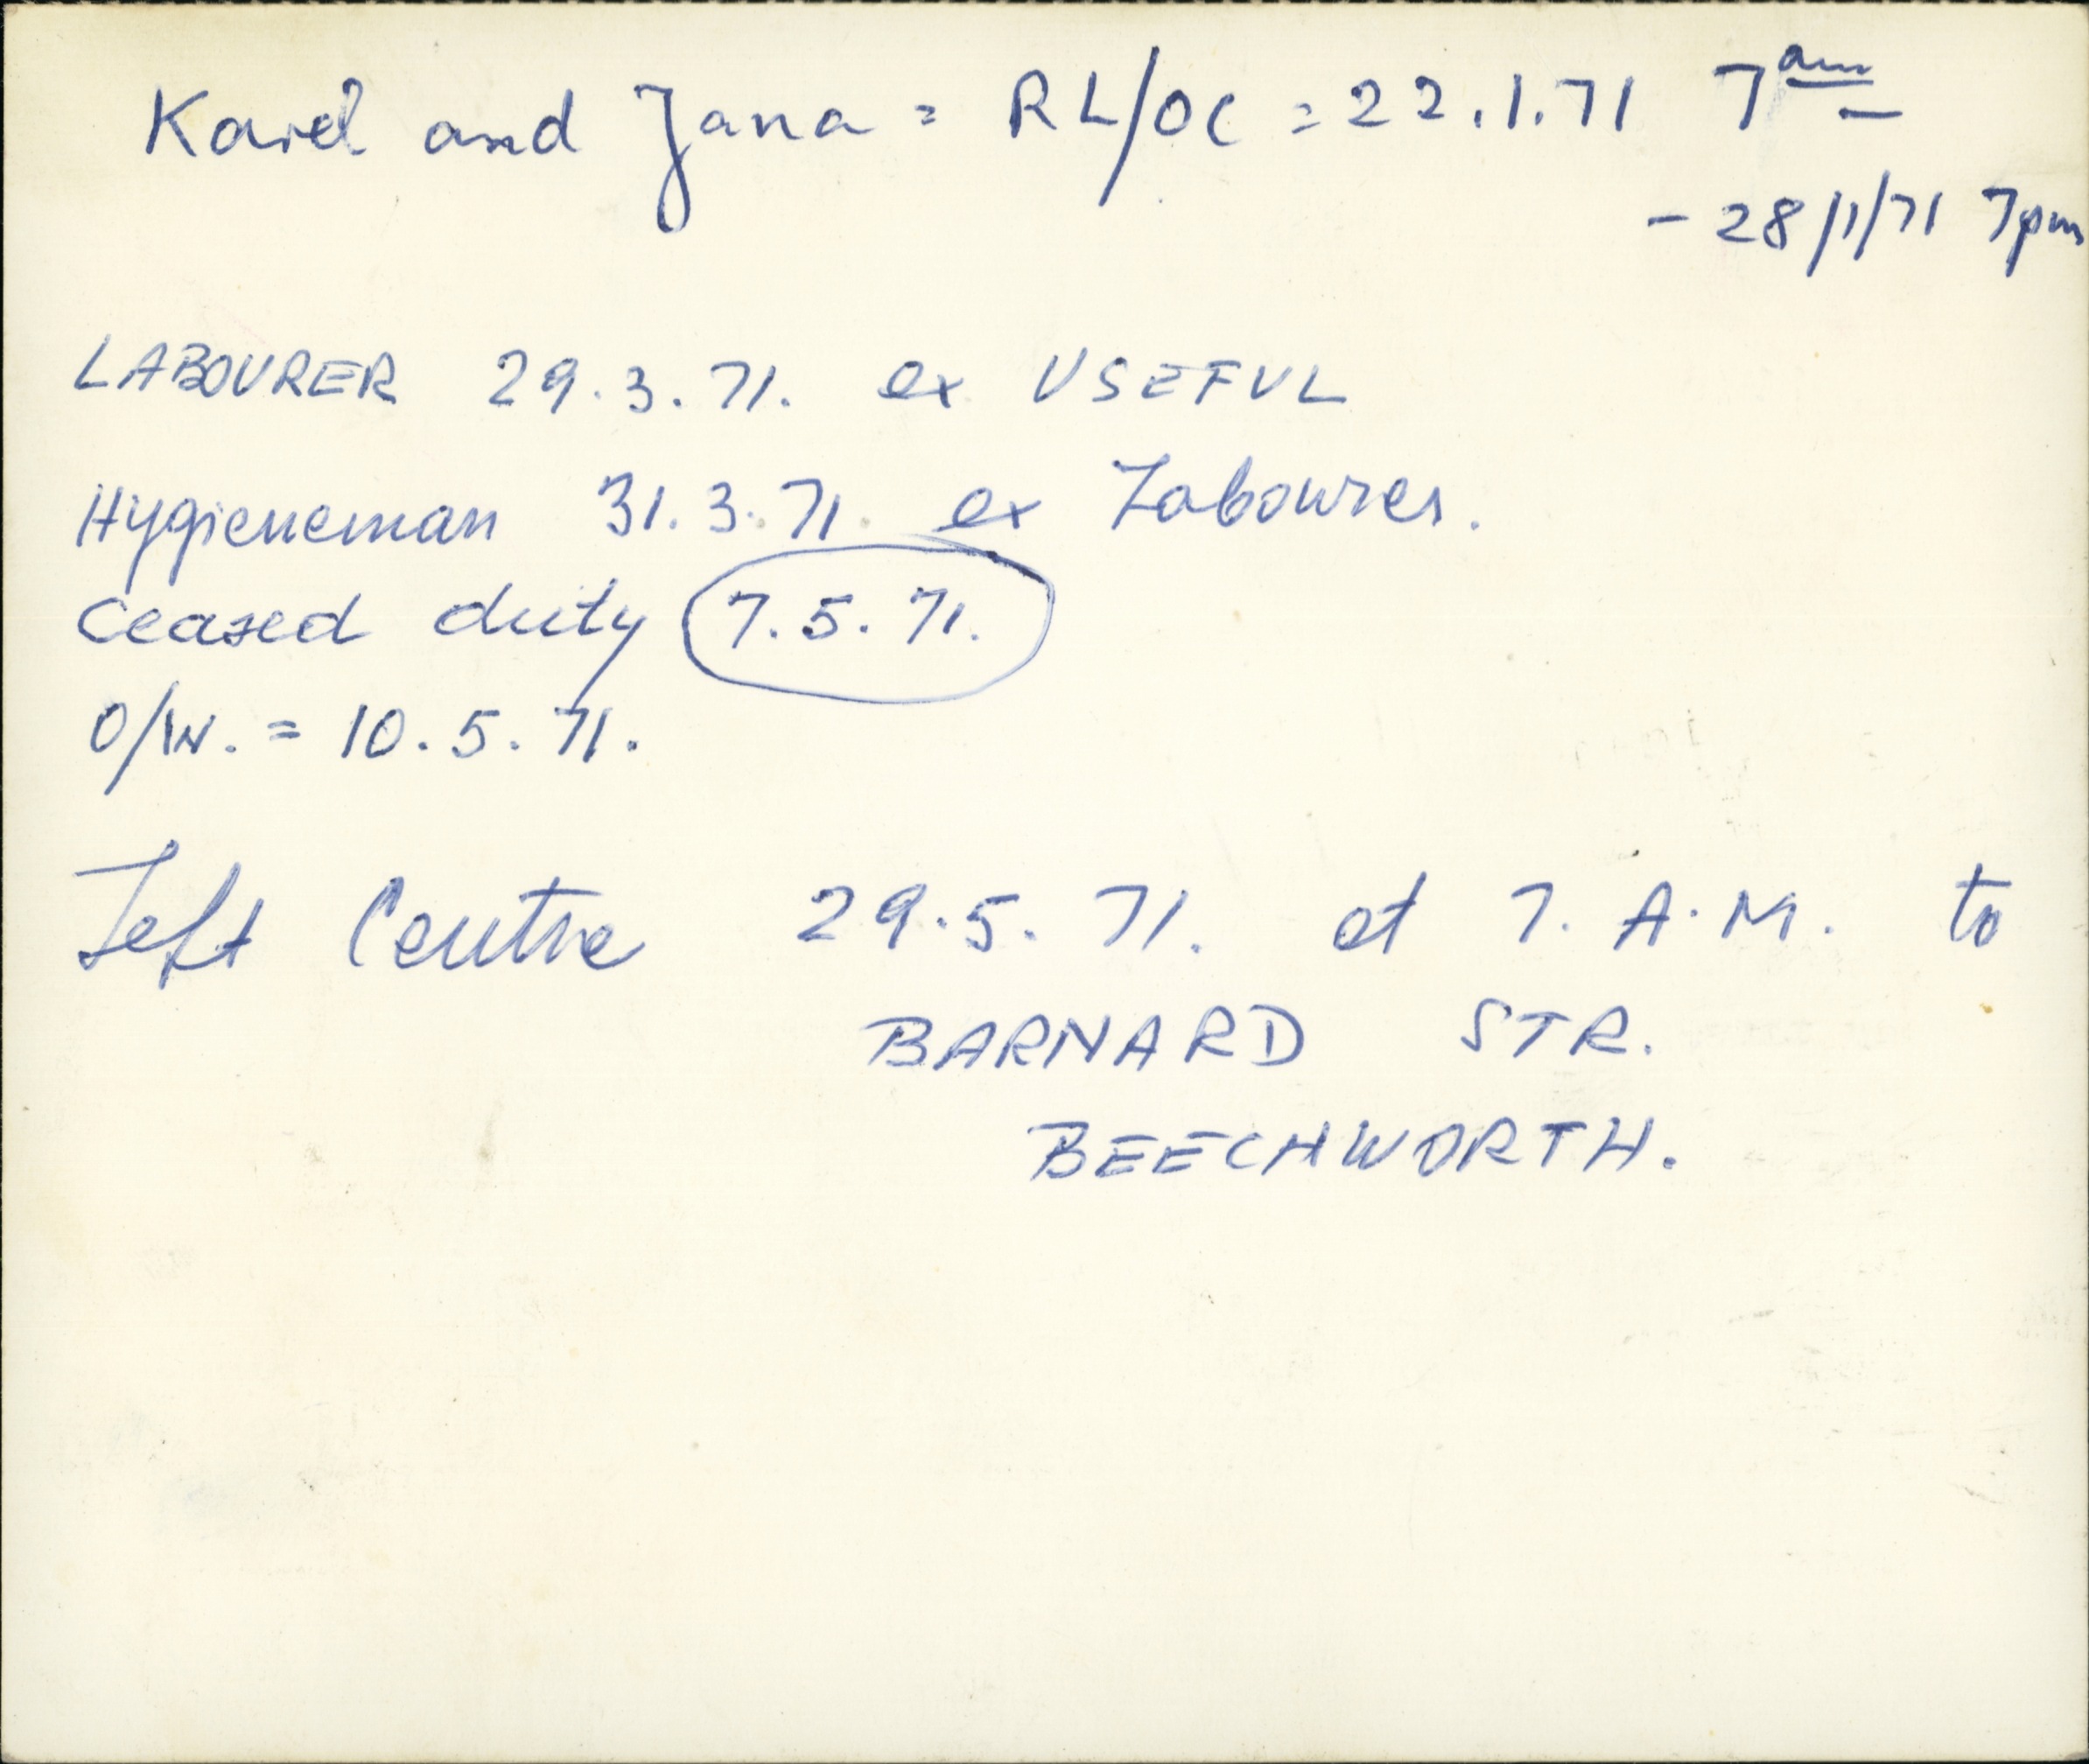 Karel and Jana = RL/OC = 22.1.71 7am
- 28/1/71 7pm
LABOURER 29.3.71. ex USEFUL
Hygieneman 31.3.71. ex Labourer.
Ceased duty 7.5.71.
O/W. = 10.5.71.
Left Centre 29.5.71. at 7. A.M. to
BARNARD STR.
BEECHWORTH.